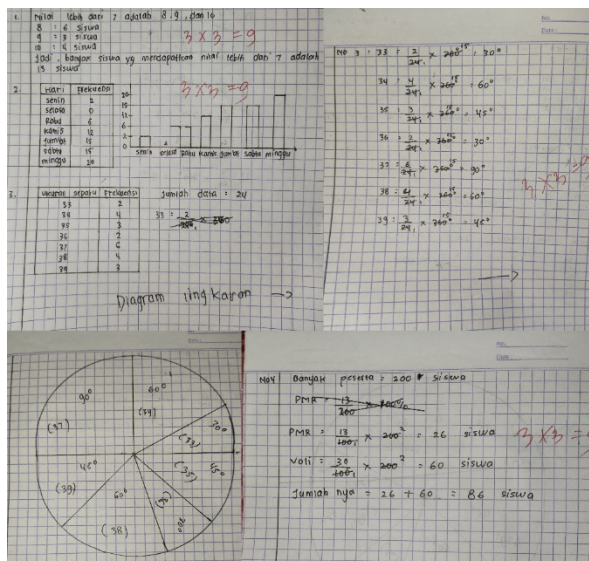 1. Nilai lebih dari 7 adalah 8, 9, dan 10
8 : 6 siswa
9 : 3 siswa
10 : 4 siswa
Jadi, banyak siswa yg mendapatkan nilai lebih dari 7 adalah
13 siswa
3 x 3 = 9
2. Hari Frekuensi
senin 2
selasa 0
Rabu 6
kamis 12
jumat 15
sabtu 15
minggu 20
3 x 3 = 9
20
15
12
6
2
senin selasa rabu kamis jumat sabtu minggu
3. ukuran sepatu Frekuensi
33 2
34 4
35 3
36 2
37 6
38 4
39 3
Jumlah data : 24
33 : 2 x 360
Diagram lingkaran →
No.
Date
No 3 : 33 : 2/24 x 360° 15 : 30°
34 : 4/24 x 360° 15 : 60°
35 : 3/24 x 360° 15 : 45°
36 : 2/24 x 360° 15 : 30°
37 : 6/24 x 360° 15 : 90°
38 : 4/24 x 360° 15 : 60°
39 : 3/24 x 360° 15 : 45°
3 x 3
→
90°
(37)
60°
(34)
30°
(33)
45°
(35)
45°
(39)
60°
(38)
30°
(36)
No.
Date
No 4 Banyak peserta = 200 siswa
PMR = 13/100 x 200%
PMR = 13/100 x 200 2 = 26 siswa
Voli = 30/100 x 200 2 = 60 siswa
Jumlah nya = 26 + 60 = 86 siswa
3 x 3 =